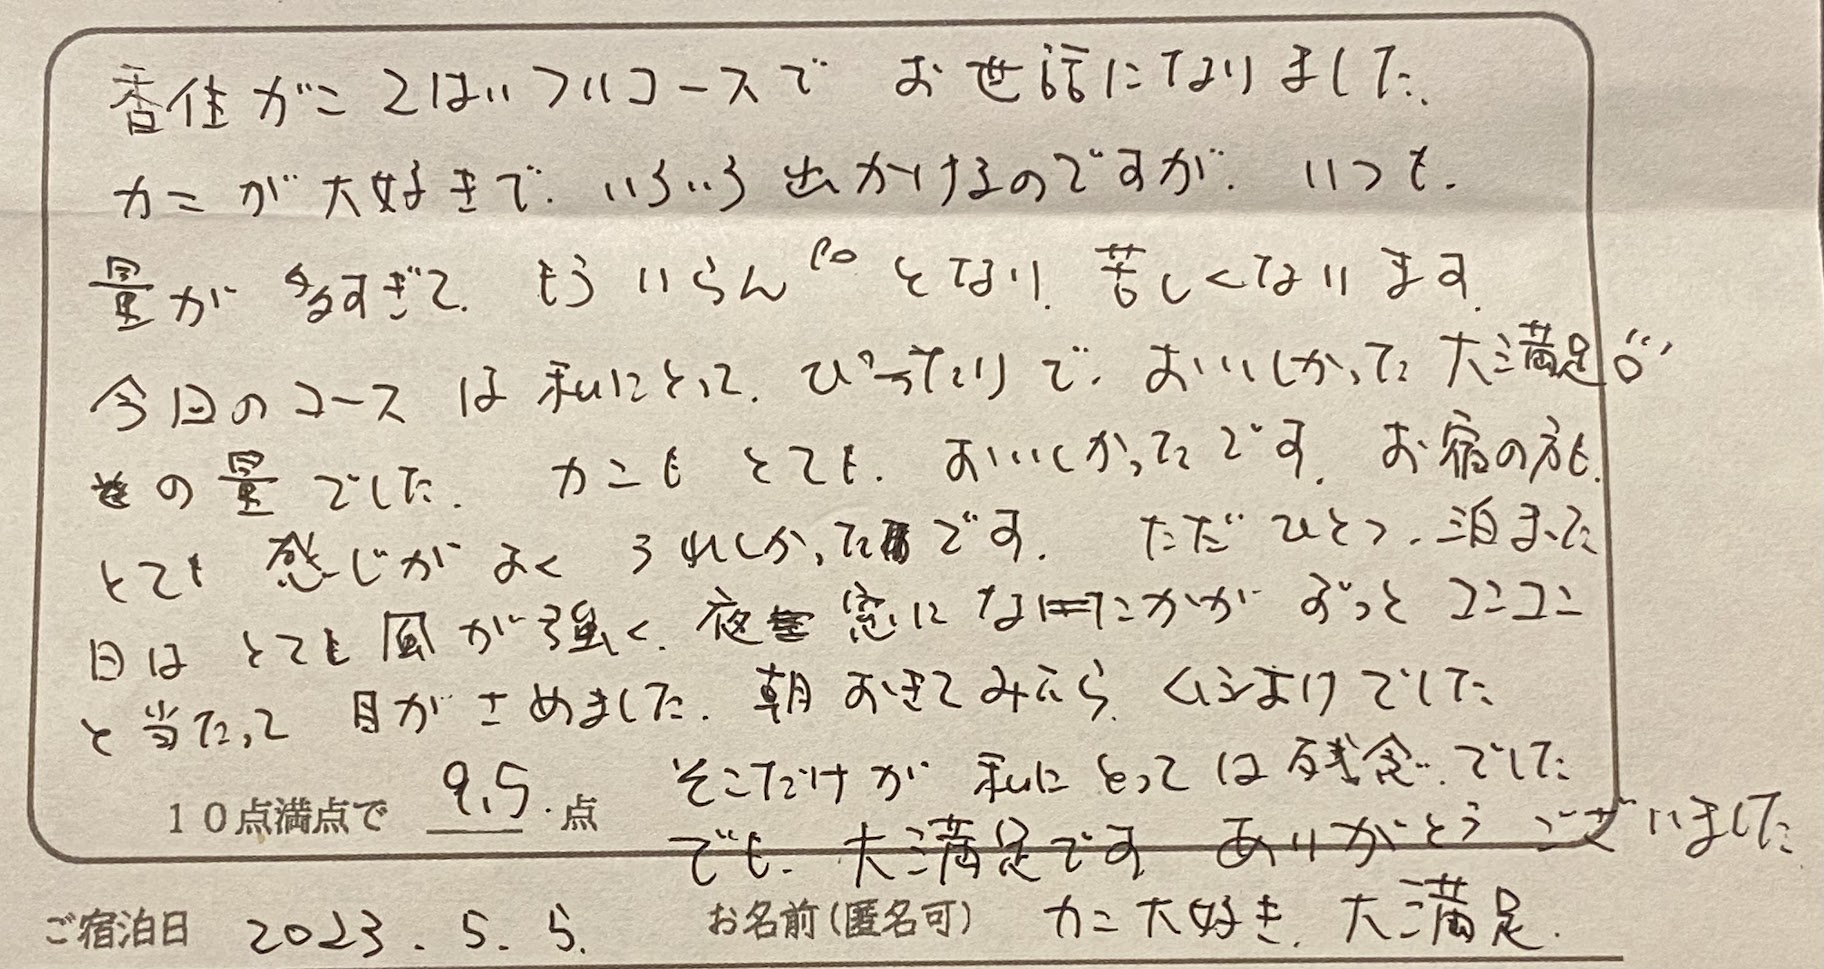 香住がに2はいフルコースで お世話になりました.
カニが大好きで. いろいろ出かけるのですが. いつも.
量が多すぎて. もういらん となり. 苦しくなります.
今回のコースは私にとって. ぴったりで. おいしかった大満足
の量でした. カニもとても. おいしかったです. お宿の方も.
とても感じがよく うれしかったです. ただひとつ. 泊まった
日はとても風が強く. 夜 窓になにかがずっとコンコン
と当たって 目がさめました. 朝おきてみたら. くいよけでした
そこだけが 私にとっては残念. でした
10点満点で 9.5. 点
でも. 大満足です ありがとうございました
ご宿泊日 2023. 5. 5. お名前(匿名可) カニ大好き. 大満足.